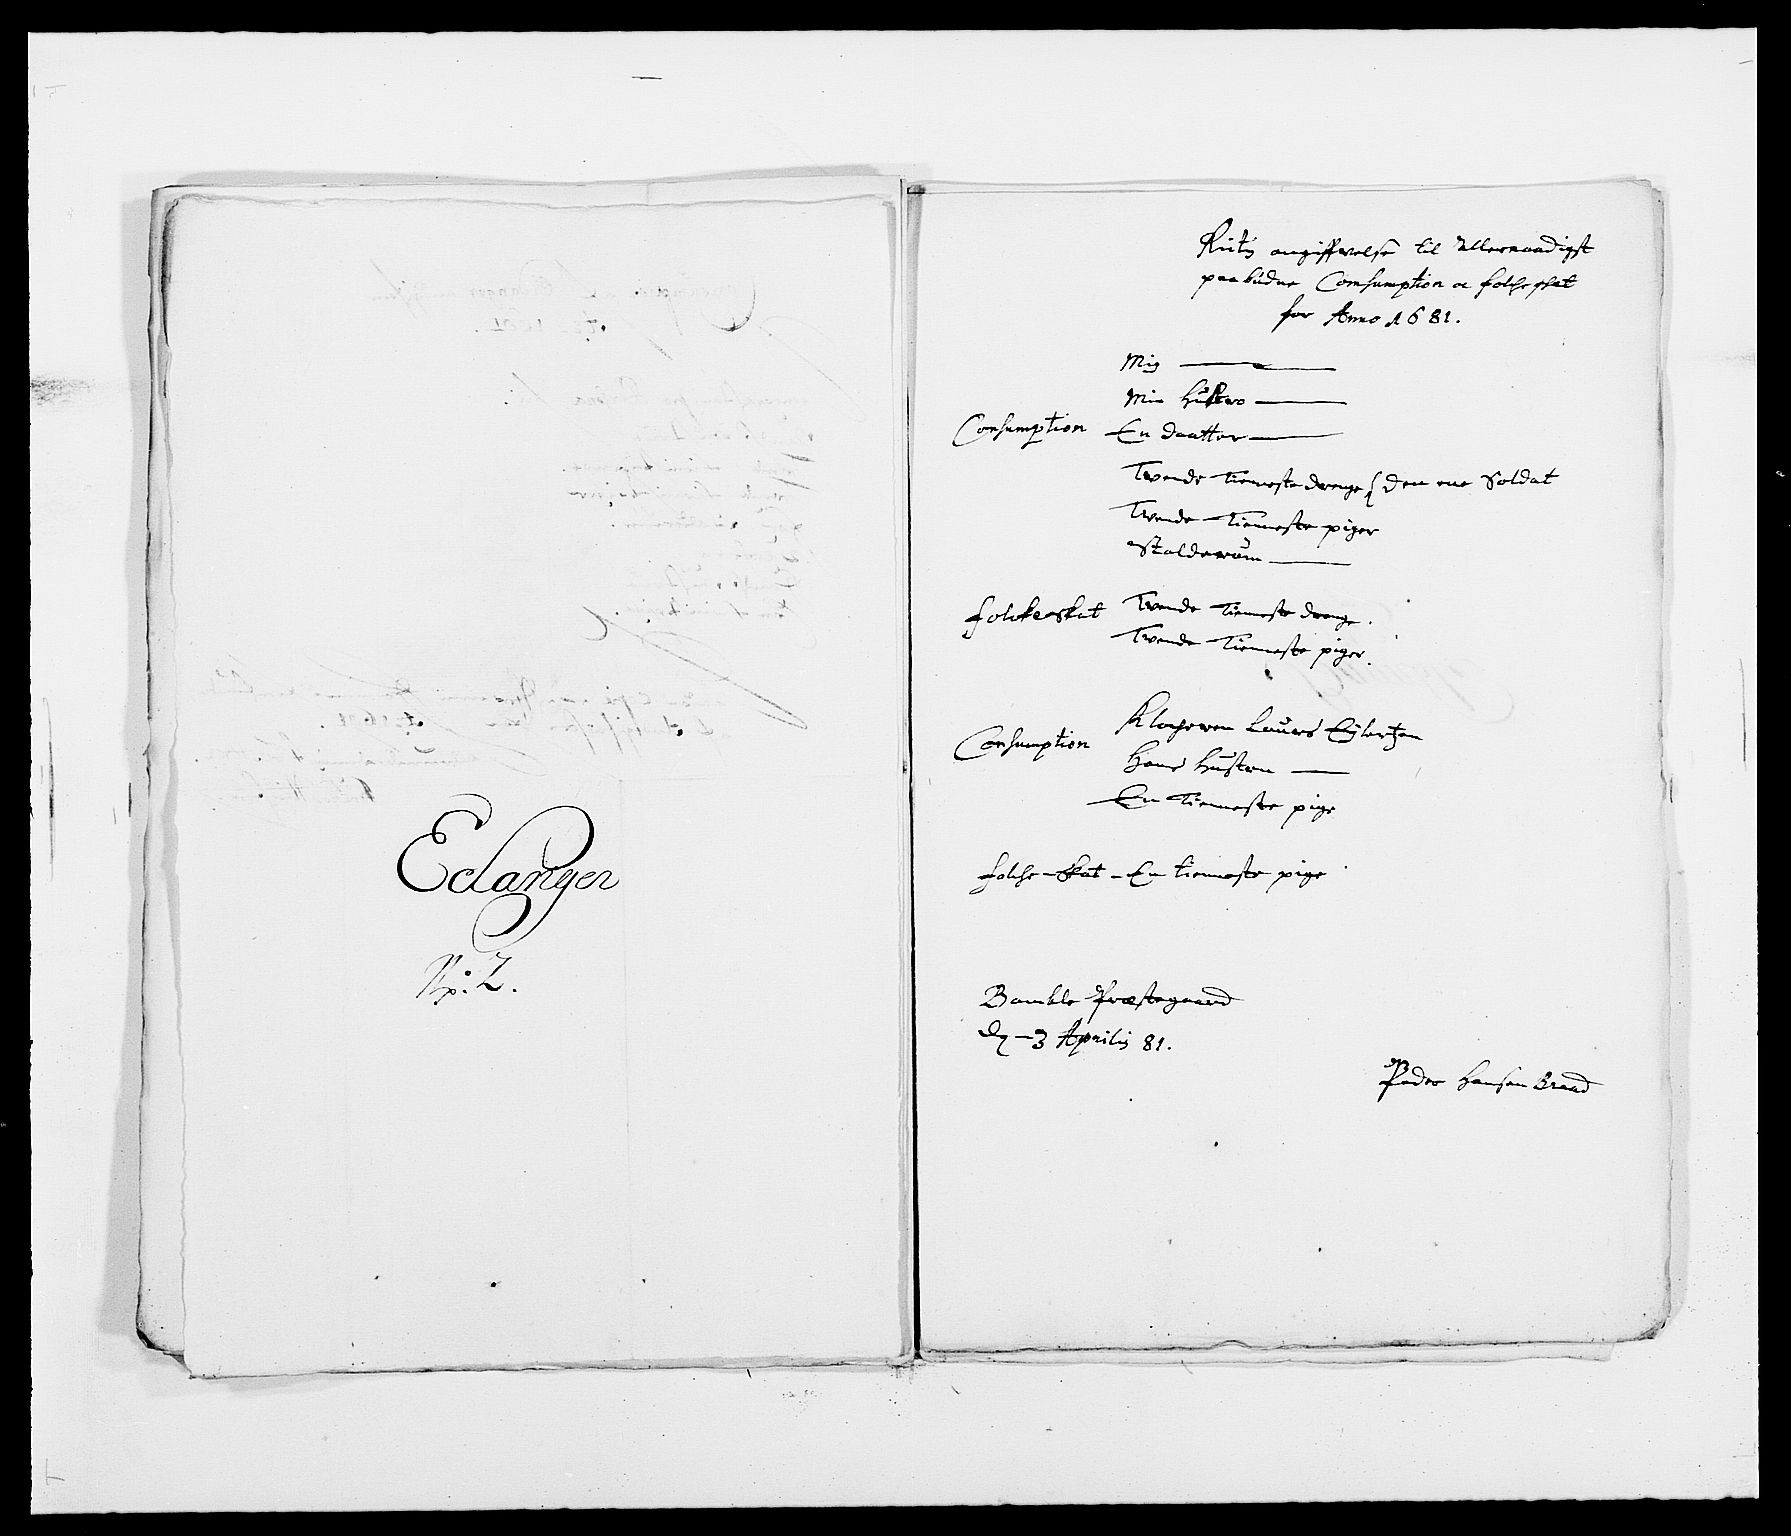 Edanger
No: 2.
Rictig angiffvelse til Allernaadigst
paabudne Comsumption oc folcheskat
for Anno 1681.
Mig
Min Hustro
Consumption En daatter
Tvende tienneste drenge den ene Soldat
Tvende tienneste piger
Stolderum
folckeskat Tvende tienneste drenge.
Tvende tienneste piger.
Consumption Klocheren Laurs Eylertzen
Hans Hustru
En tienneste pige
folche-skat - En tienneste pige
Bamble Præstegaard
dy - 3 Aprilis 81.
Peder Hansen Braad